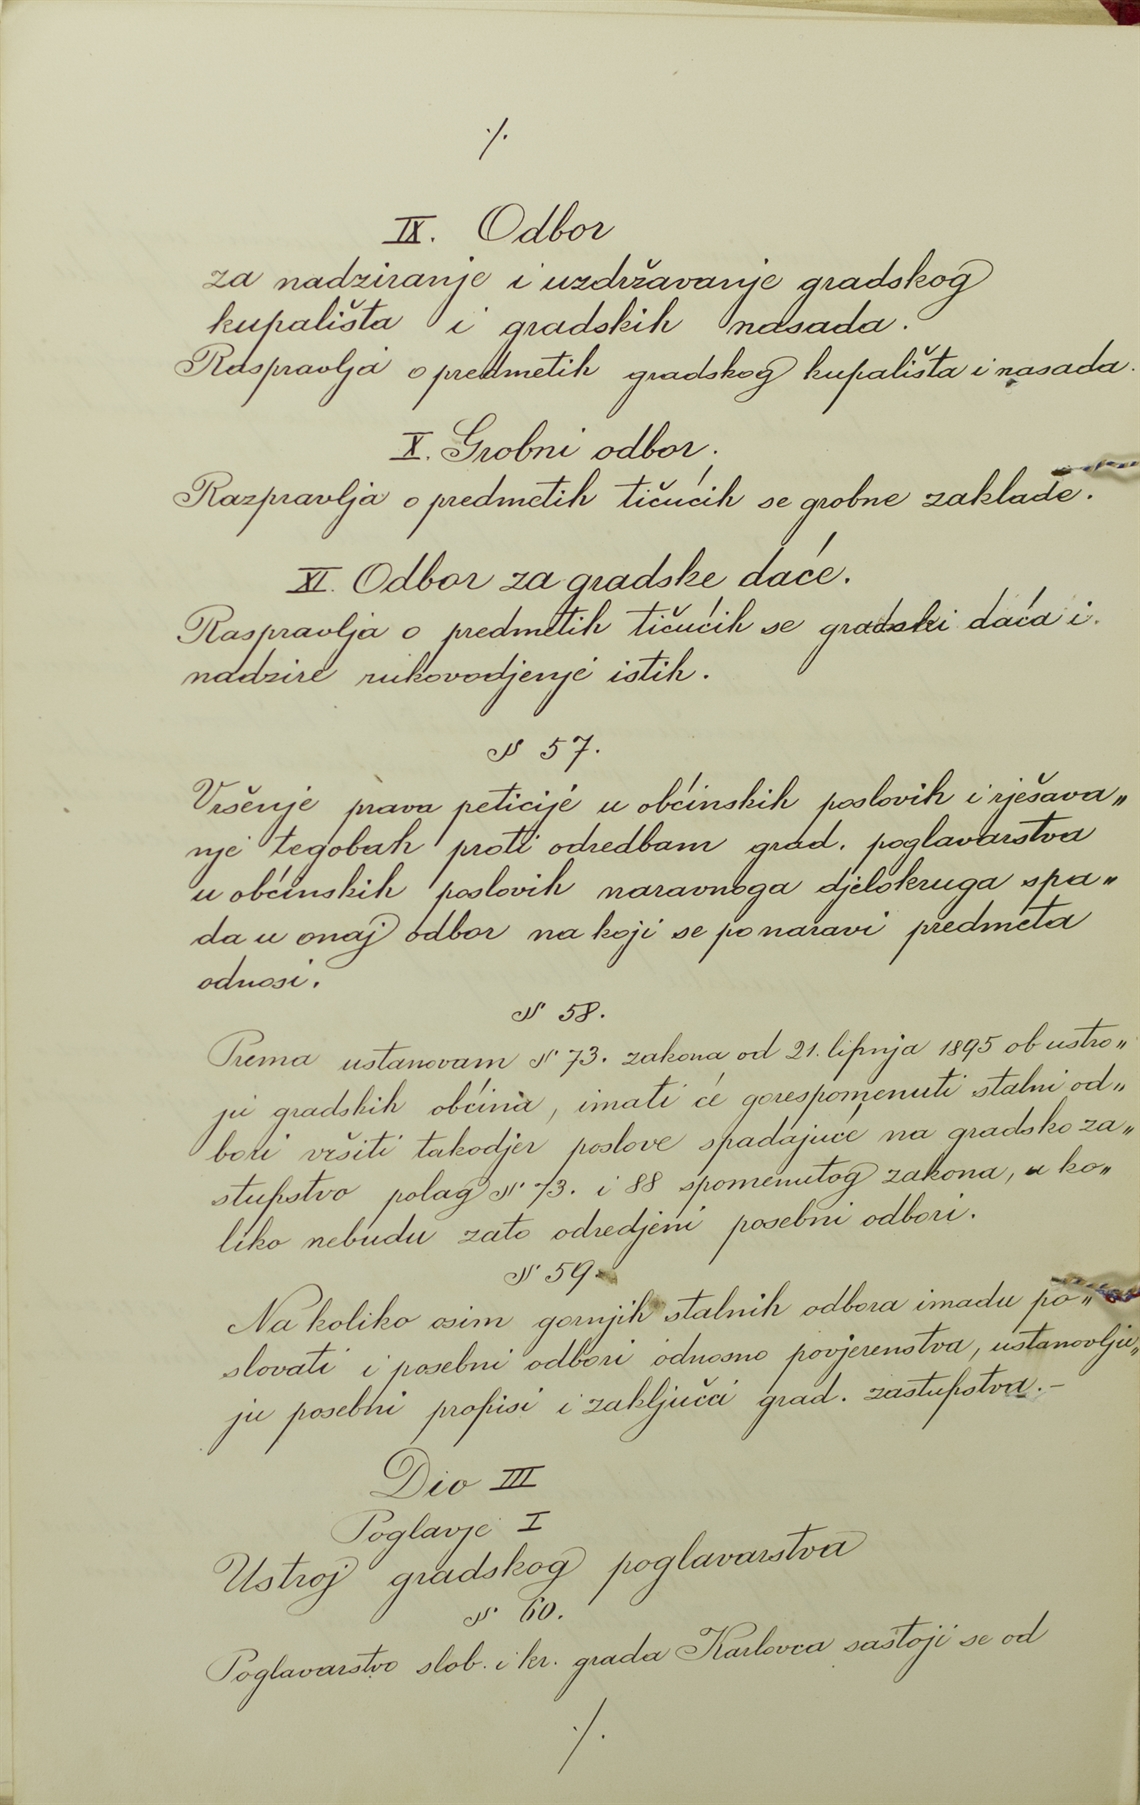 ·/.
IX. Odbor
za nadziranje i uzdržavanje gradskog
kupališta i gradskih nasada.
Raspravlja o predmetih gradskog kupališta i nasada.
X. Grobni odbor.
Razpravlja o predmetih tičućih se grobne zaklade.
XI. Odbor za gradske daće.
Raspravlja o predmetih tičućih se gradski daća i
nadzire rukovodjenje istih.
§ 57.
Vršenje prava peticije u obćinskih poslovih i rješava„
nje tegobah proti odredbam grad. poglavarstva
u obćinskih poslovih naravnoga djelokruga spa„
da u onaj odbor na koji se po naravi predmeta
odnosi.
§ 58.
Prema ustanovam § 73. zakona od 21. lipnja 1895 ob ustro„
ju gradskih obćina, imati će gorespomenuti stalni od„
bori vršiti takodjer poslove spadajuće na gradsko za„
stupstvo polag § 73. i 88 spomenutog zakona, u ko„
liko nebudu zato odredjeni posebni odbori.
§ 59.
Na koliko osim gornjih stalnih odbora imadu po„
slovati i posebni odbori odnosno povjerenstva, ustanovlju„
ju posebni propisi i zaključci grad. zastupstva.–
Dio III
Poglavje I
Ustroj gradskog poglavarstva
§ 60.
Poglavarstvo slob. i kr. grada Karlovca sastoji se od
·/.